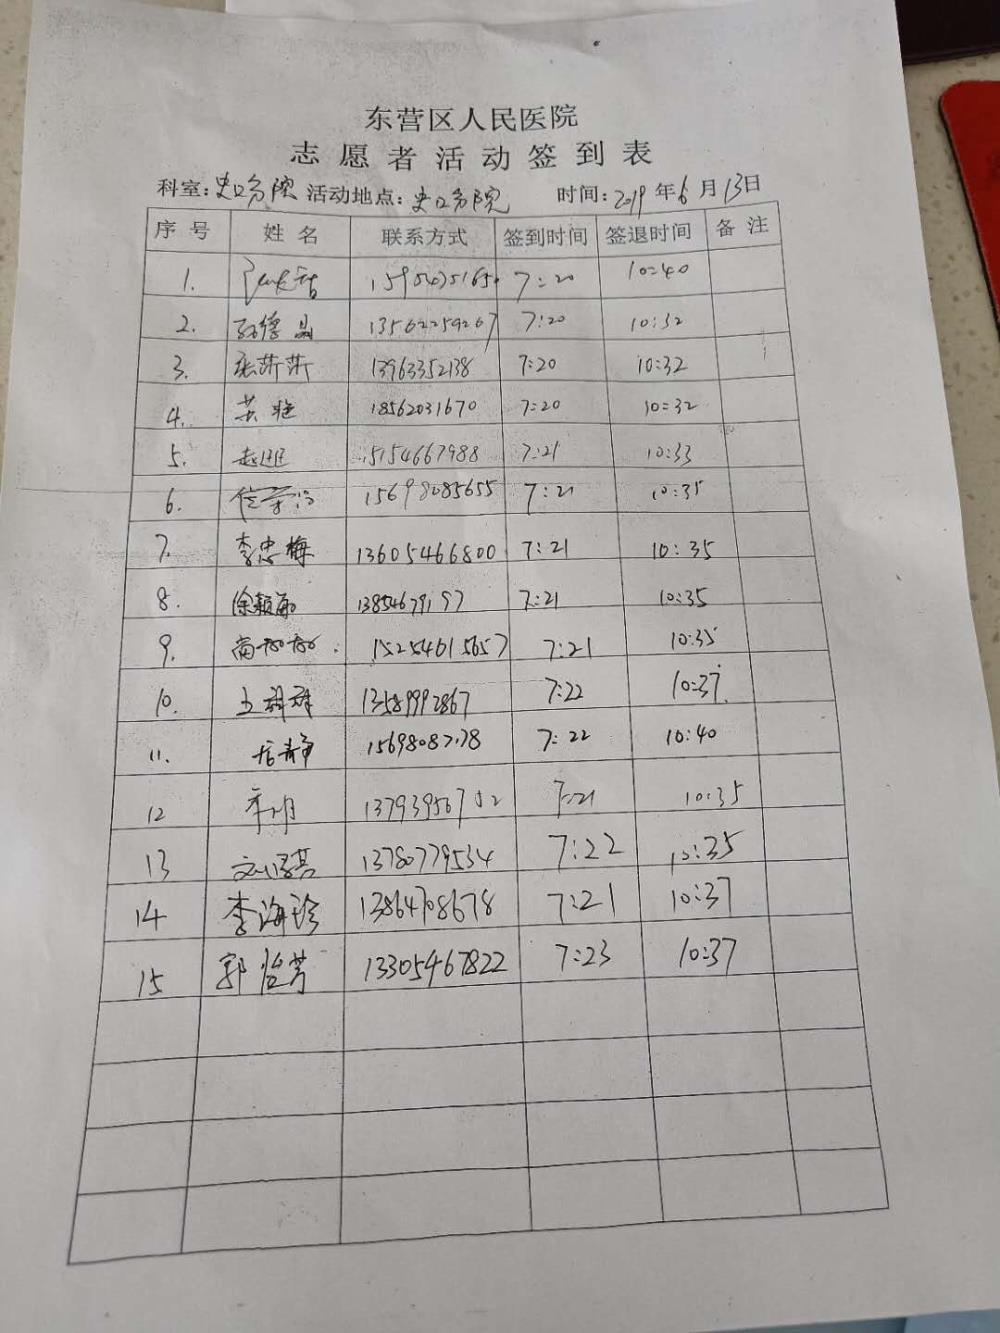 东营区人民医院
志愿者活动签到表
科室: 史口分院 活动地点: 史口分院 时间: 2019年6月13日
序号 姓名 联系方式 签到时间 签退时间 备注
1. 7:20 10:40
2. 13562259267 7:20 10:32
3. 张莎莎 13963352138 7:20 10:32
4. 18562031670 7:20 10:32
5. 15154667988 7:21 10:33
6. 15698085655 7:21 10:35
7. 李忠梅 13605466800 7:21 10:35
8. 徐颖 13854679197 7:21 10:35
9. 15254615657 7:21 10:35
10. 王群群 13589992867 7:22 10:37
11. 7:22 10:40
12 7:21 10:35
13 13780779534 7:22 10:35
14 李海珍 13864708678 7:21 10:37
15 郭怡芳 13305467822 7:23 10:37